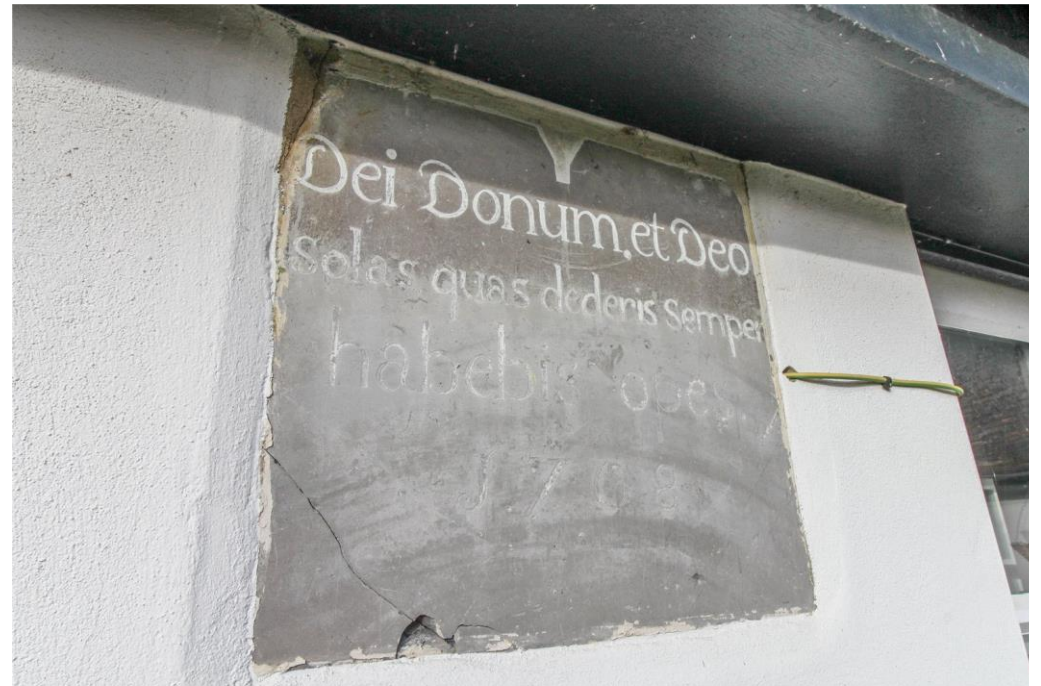 Y
Dei Donum, et Deo
solas quas dederis Semper
habebis opes
1708